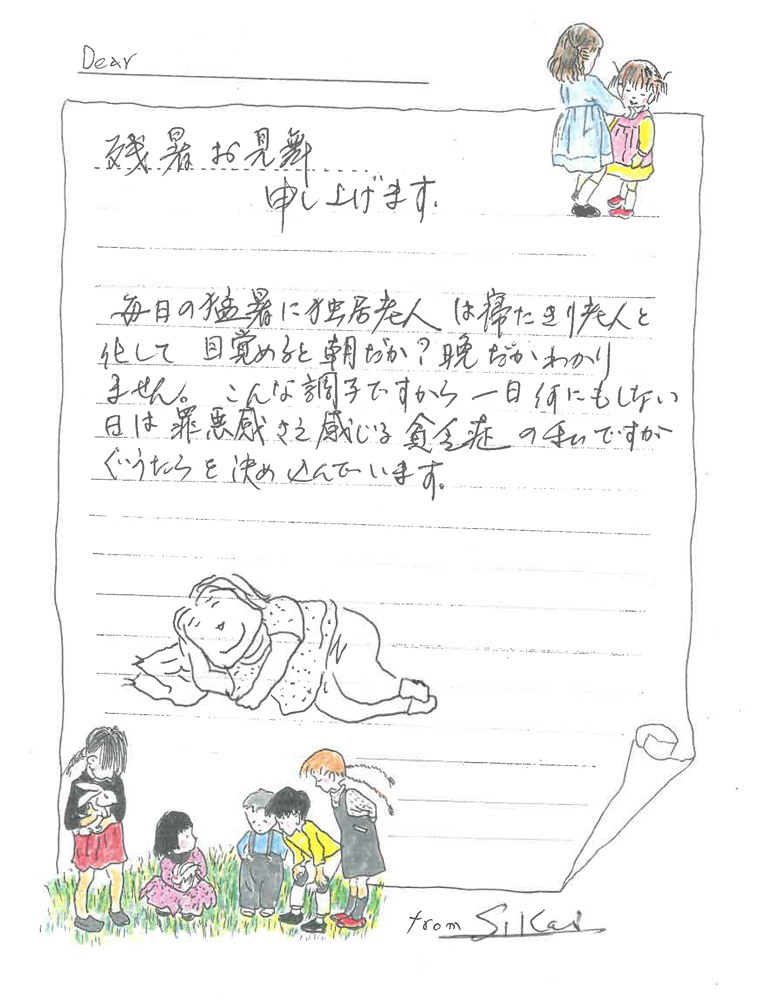 Dear
残暑お見舞
申し上げます.
毎日の猛暑に独居老人は寝たきり老人と
化して 目覚めると朝だか?晩だかわかり
ません。こんな調子ですから一日何にもしない
日は罪悪感さえ感じる貧乏症の私ですが
ぐうたらを決め込んでいます。
from